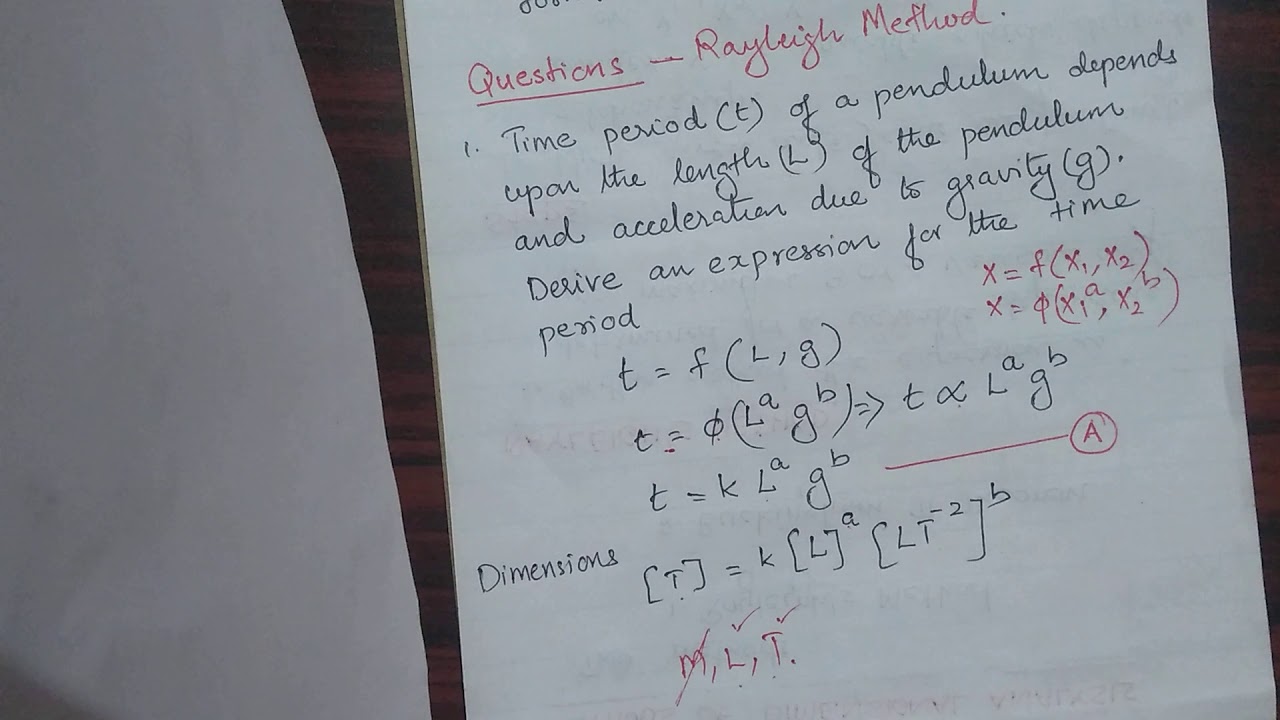 Questions – Rayleigh Method.
1. Time period (t) of a pendulum depends
upon the length (L) of the pendulum
and acceleration due to gravity (g).
Derive an expression for the time
period
x = f(x₁, x₂)
x = φ(x₁ᵃ, x₂ᵇ)
t = f (L, g)
t = φ(Lᵃ gᵇ) => t ∝ Lᵃ gᵇ
t = k Lᵃ gᵇ — A
Dimensions [T] = k [L]ᵃ [LT⁻²]ᵇ
M, L, T.